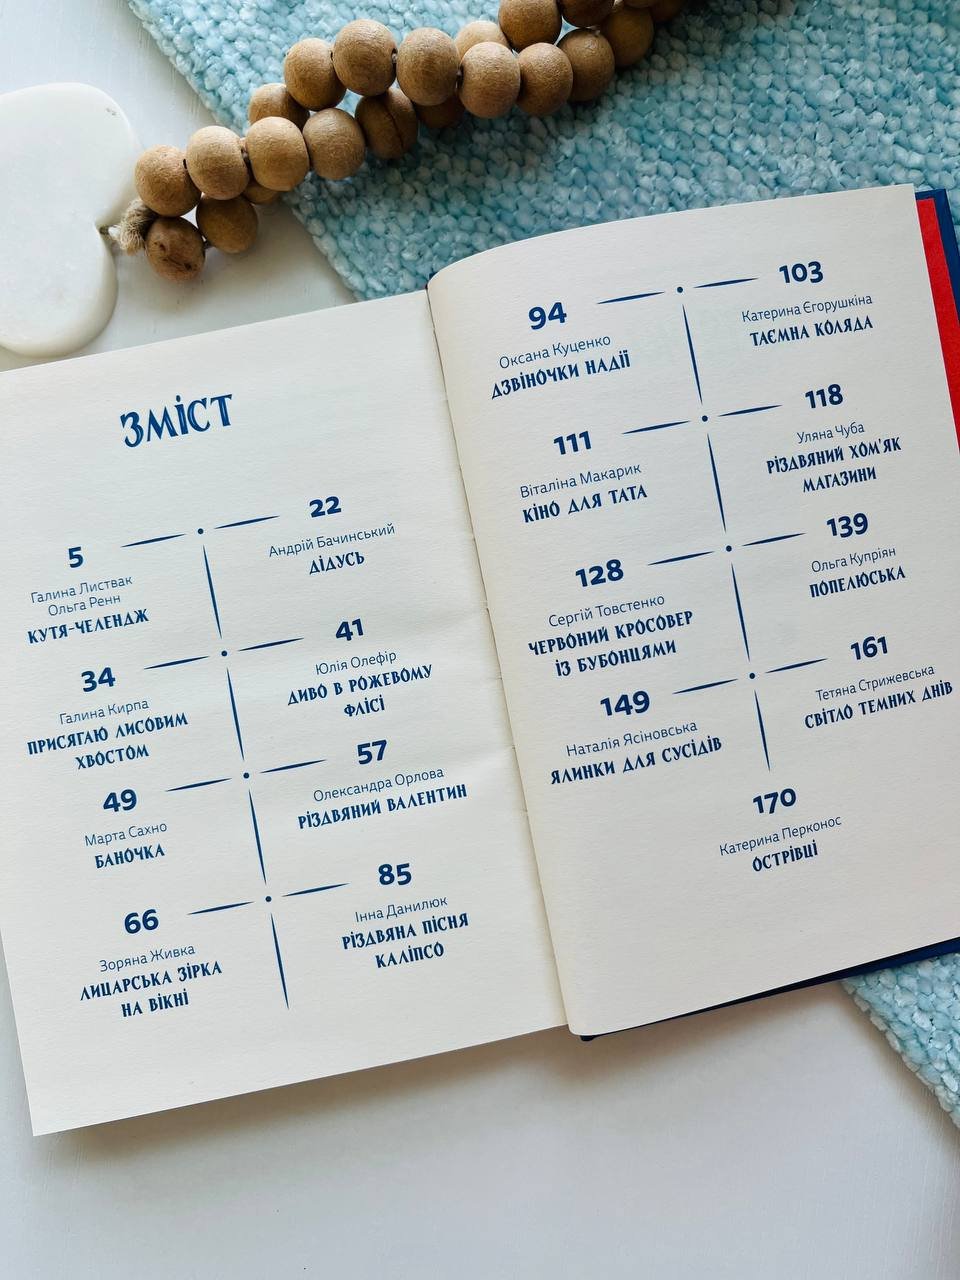 ЗМІСТ
5
Галина Листвак
Ольга Ренн
КУТЯ-ЧЕЛЕНДЖ
22
Андрій Бачинський
ДІДУСЬ
34
Галина Кирпа
ПРИСЯГАЮ ЛИСОВИМ
ХВОСТОМ
41
Юлія Олефір
ДИВО В РОЖЕВОМУ
ФЛІСІ
49
Марта Сахно
БАНОЧКА
57
Олександра Орлова
РІЗДВЯНИЙ ВАЛЕНТИН
66
Зоряна Живка
ЛИЦАРСЬКА ЗІРКА
НА ВІКНІ
85
Інна Данилюк
РІЗДВЯНА ПІСНЯ
КАЛІПСО
94
Оксана Куценко
ДЗВІНОЧКИ НАДІЇ
103
Катерина Єгорушкіна
ТАЄМНА КОЛЯДА
111
Віталіна Макарик
КІНО ДЛЯ ТАТА
118
Уляна Чуба
РІЗДВЯНИЙ ХОМ'ЯК
МАГАЗИНИ
128
Сергій Товстенко
ЧЕРВОНИЙ КРОСОВЕР
ІЗ БУБОНЦЯМИ
139
Ольга Купріян
ПОПЕЛЮСЬКА
149
Наталія Ясіновська
ЯЛИНКИ ДЛЯ СУСІДІВ
161
Тетяна Стрижевська
СВІТЛО ТЕМНИХ ДНІВ
170
Катерина Перконос
ОСТРІВЦІ